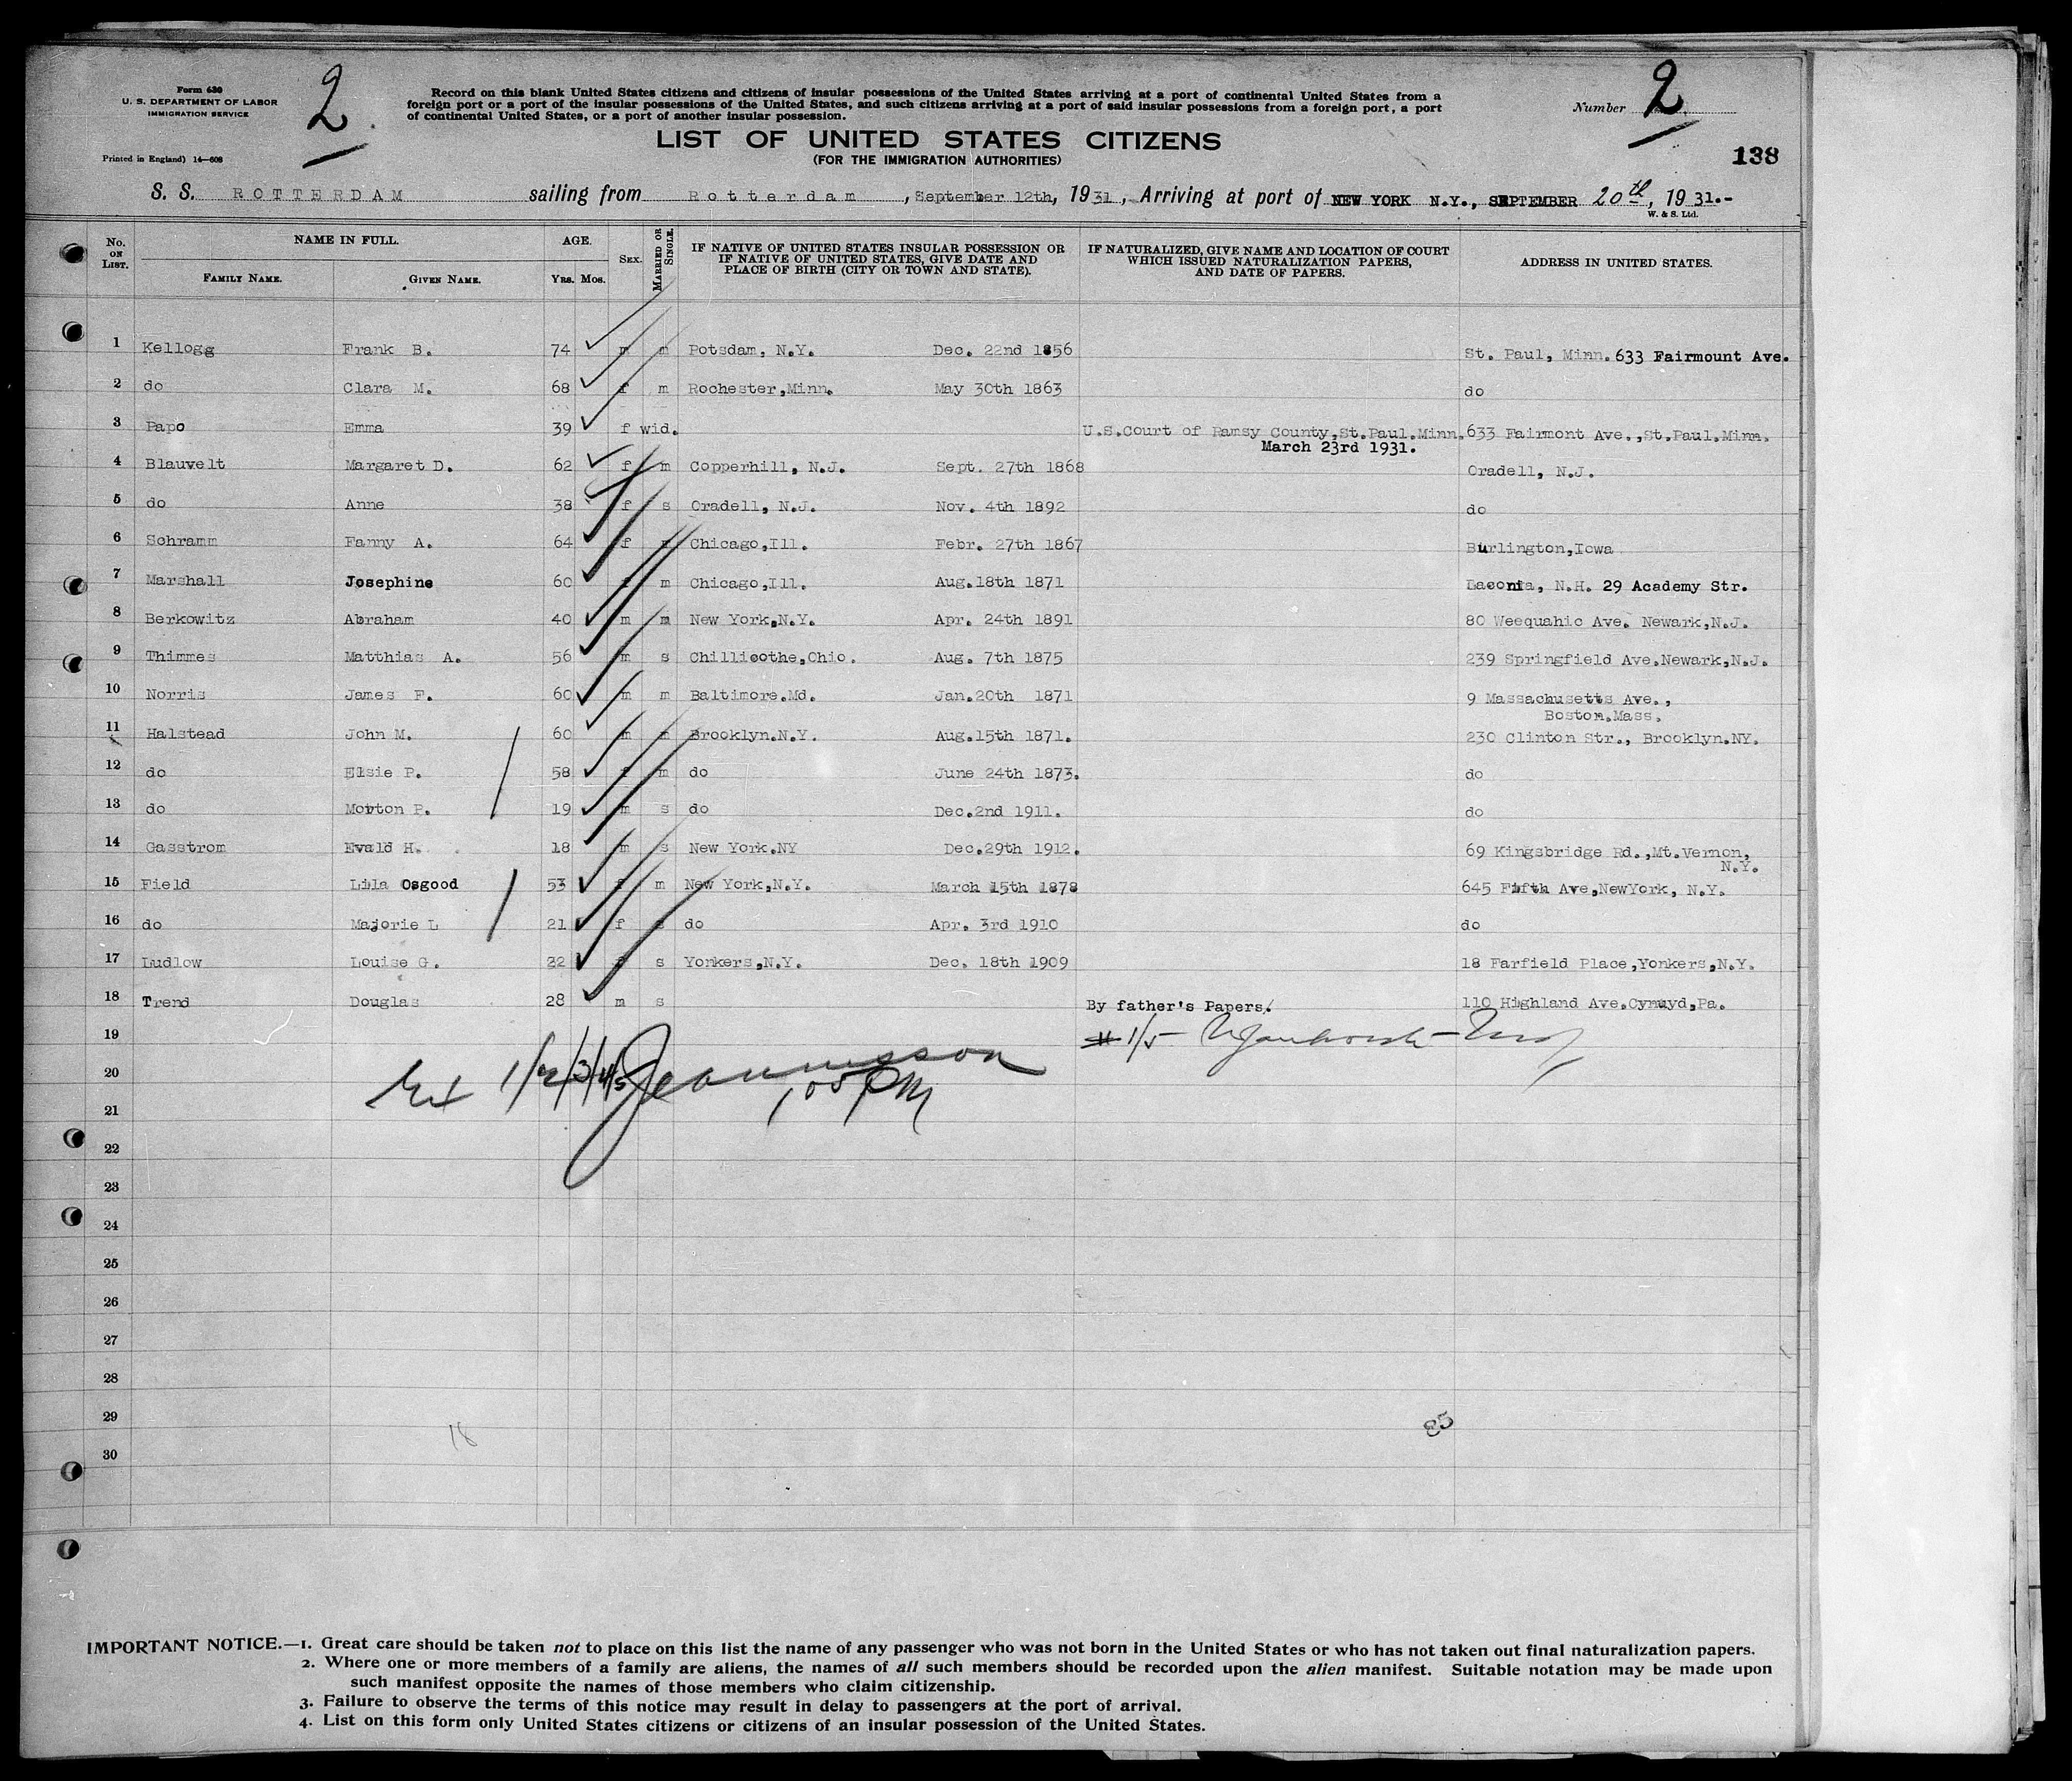 Form 630
U. S. DEPARTMENT OF LABOR
IMMIGRATION SERVICE
Printed in England) 14—608
2
Record on this blank United States citizens and citizens of insular possessions of the United States arriving at a port of continental United States from a
foreign port or a port of the insular possessions of the United States, and such citizens arriving at a port of said insular possessions from a foreign port, a port
of continental United States, or a port of another insular possession.
Number 2
LIST OF UNITED STATES CITIZENS
(FOR THE IMMIGRATION AUTHORITIES)
138
S. S. ROTTERDAM sailing from Rotterdam, September 12th, 1931, Arriving at port of NEW YORK N.Y., SEPTEMBER 20th, 1931.-
W. & S. Ltd.
No. ON LIST. NAME IN FULL. FAMILY NAME. GIVEN NAME. AGE. YRS. MOS. SEX. MARRIED OR SINGLE. IF NATIVE OF UNITED STATES INSULAR POSSESSION OR IF NATIVE OF UNITED STATES, GIVE DATE AND PLACE OF BIRTH (CITY OR TOWN AND STATE). IF NATURALIZED, GIVE NAME AND LOCATION OF COURT WHICH ISSUED NATURALIZATION PAPERS, AND DATE OF PAPERS. ADDRESS IN UNITED STATES.
1 Kellogg Frank B. 74 m m Potsdam, N.Y. Dec. 22nd 1856 St. Paul, Minn. 633 Fairmount Ave.
2 do Clara M. 68 f m Rochester,Minn. May 30th 1863 do
3 Papo Emma 39 f wid. U.S.Court of Ramsy County,St.Paul.Minn. 633 Fairmont Ave.,St.Paul.Minn.
March 23rd 1931.
4 Blauvelt Margaret D. 62 f m Copperhill, N.J. Sept. 27th 1868 Oradell, N.J.
5 do Anne 38 f s Oradell, N.J. Nov. 4th 1892 do
6 Schramm Fanny A. 64 f Chicago,Ill. Febr. 27th 1867 Burlington,Iowa
7 Marshall Josephine 60 f m Chicago,Ill. Aug.18th 1871 Laconia, N.H. 29 Academy Str.
8 Berkowitz Abraham 40 m m New York,N.Y. Apr. 24th 1891 80 Weequahic Ave. Newark,N.J.
9 Thimmes Matthias A. 56 m s Chillicothe,Ohio. Aug. 7th 1875 239 Springfield Ave.Newark,N.J.
10 Norris James F. 60 m m Baltimore.Md. Jan.20th 1871 9 Massachusetts Ave.,
Boston.Mass.
11 Halstead John M. 60 m m Brooklyn.N.Y. Aug.15th 1871. 230 Clinton Str., Brooklyn.NY.
12 do Elsie P. 58 f m do June 24th 1873. do
13 do Morton P. 19 m s do Dec.2nd 1911. do
14 Gasstrom Evald H. 18 m s New York.NY Dec.29th 1912. 69 Kingsbridge Rd.,Mt.Vernon,
N.Y.
15 Field Lila Osgood 53 f m New York,N.Y. March 15th 1878 645 Fifth Ave,NewYork, N.Y.
16 do Majorie L 21 f s do Apr. 3rd 1910 do
17 Ludlow Louise G. 22 f s Yonkers,N.Y. Dec. 18th 1909 18 Farfield Place,Yonkers,N.Y.
18 Trend Douglas 28 m s By father's Papers. 110 Highland Ave.Cynwyd,Pa.
19
20
21
22
23
24
25
26
27
28
29
30
1/2/3/4/5
105 PM
18
85
IMPORTANT NOTICE.—1. Great care should be taken not to place on this list the name of any passenger who was not born in the United States or who has not taken out final naturalization papers.
2. Where one or more members of a family are aliens, the names of all such members should be recorded upon the alien manifest. Suitable notation may be made upon
such manifest opposite the names of those members who claim citizenship.
3. Failure to observe the terms of this notice may result in delay to passengers at the port of arrival.
4. List on this form only United States citizens or citizens of an insular possession of the United States.